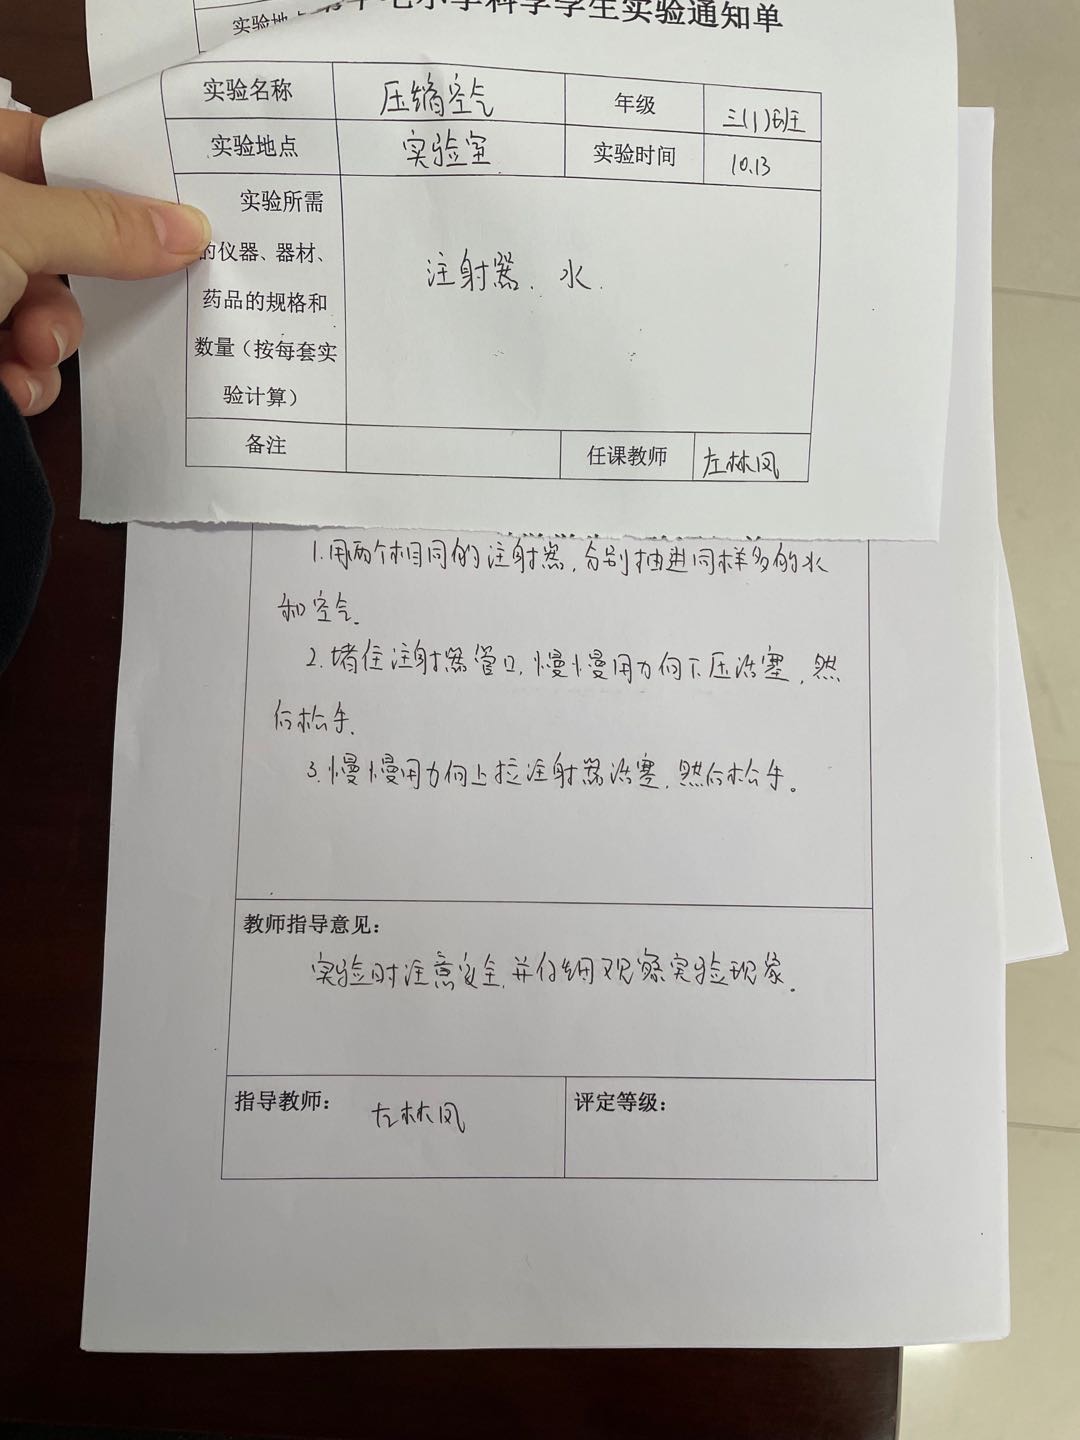 小学科学学生实验通知单
实验地
实验名称 压缩空气 年级 三(1)班
实验地点 实验室 实验时间 10.13
实验所需
的仪器、器材、
药品的规格和
数量（按每套实
验计算）
注射器、水.
备注 任课教师 左林凤
1.用两个相同的注射器,分别抽进同样多的水
和空气.
2.堵住注射器管口,慢慢用力向下压活塞,然
后松手.
3.慢慢用力向上拉注射器活塞,然后松手。
教师指导意见：
实验时注意安全,并仔细观察实验现象.
指导教师： 左林凤 评定等级：